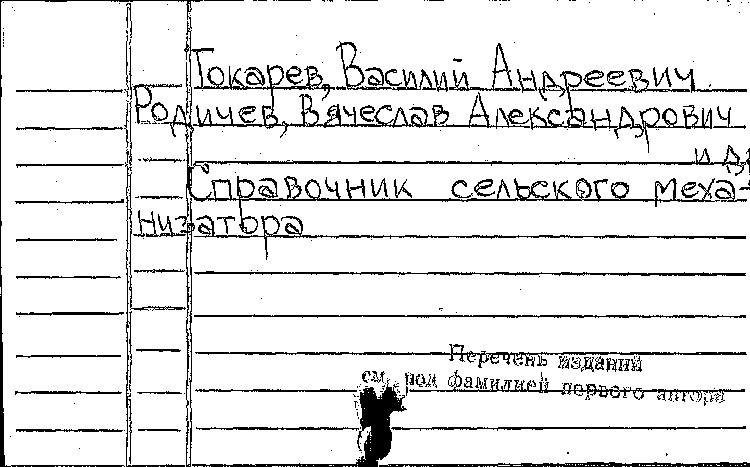 Токарев, Василий Андреевич.
Родичев, Вячеслав Александрович
и др
Справочник сельского меха-
низатора
Перечень изданий
см. под фамилией первого автора